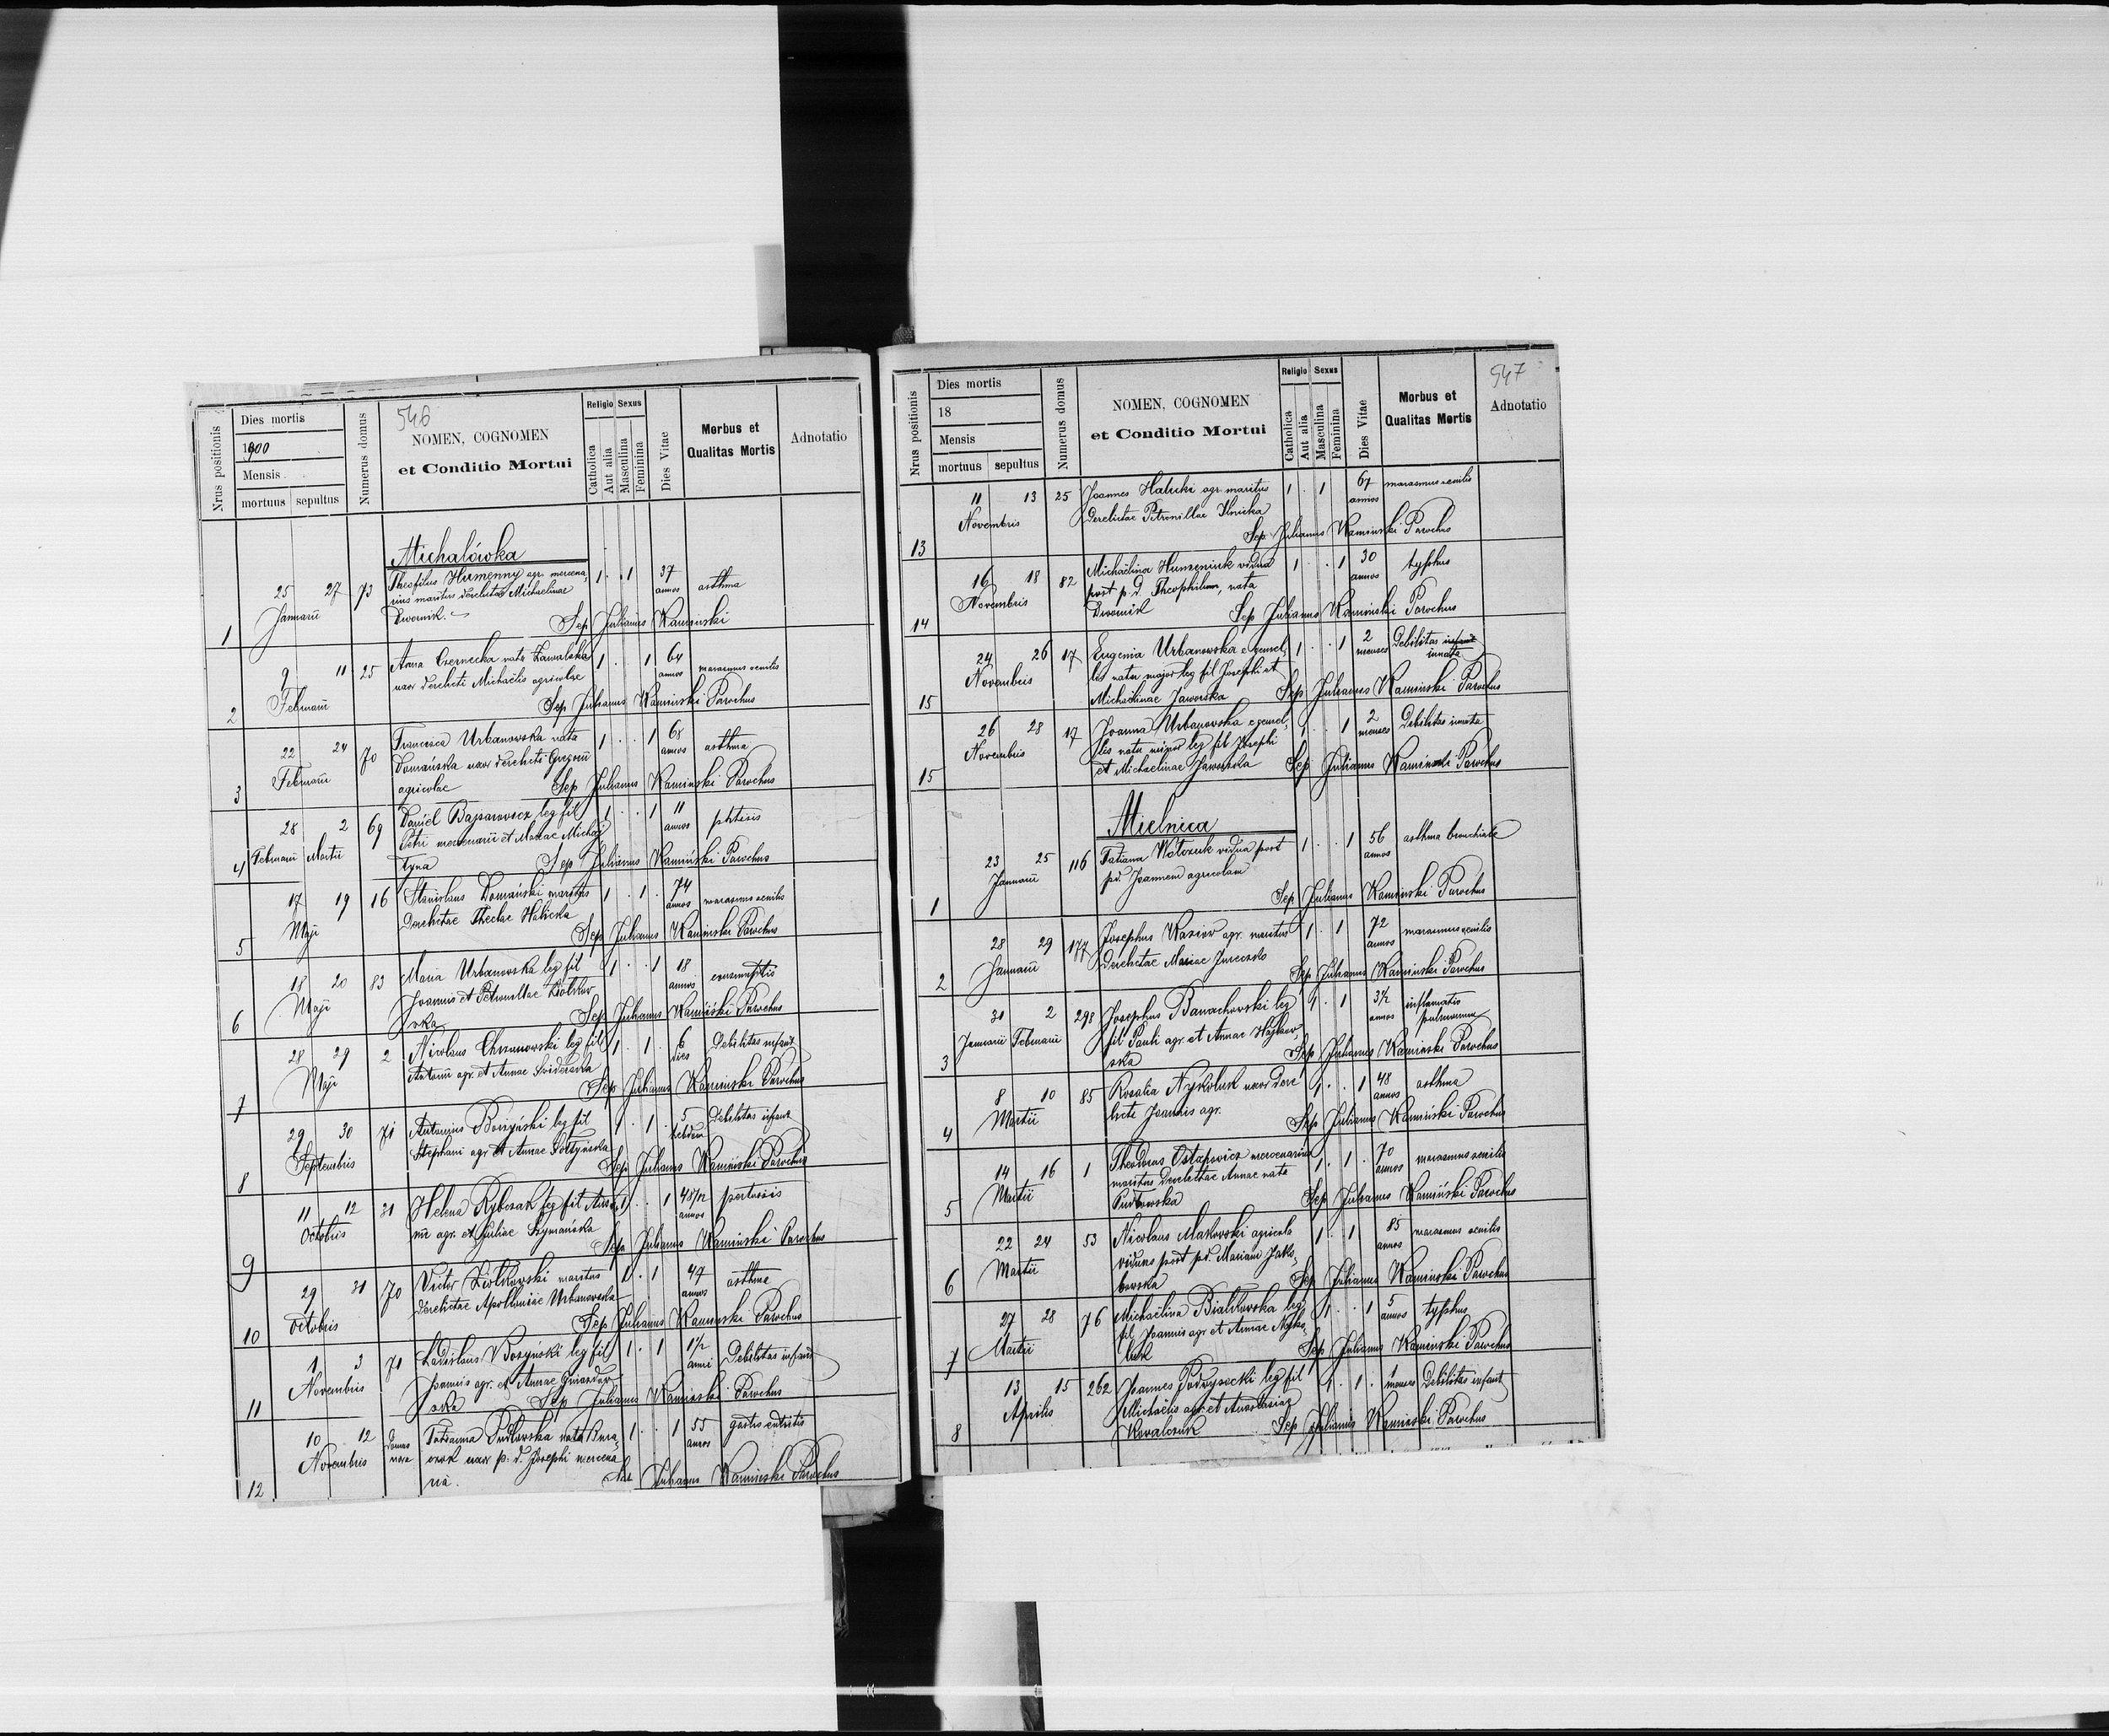 546
Nrus positionis
Dies mortis
1900
Mensis
mortuus sepultus
Numerus domus
NOMEN, COGNOMEN
et Conditio Mortui
Religio Sexus
Catholica
Aut alia
Masculina
Feminina
Dies Vitae
Morbus et
Qualitas Mortis
Adnotatio
Michalówka
1 25 27 Januarii 73 Theofilus Humenny agr. mercena- 1 1 37 annos asthma
rius maritus derelictae Michaelinae
Dwornik.
Sep Julianus Kaminski
2 9 11 Februarii 25 Anna Czernecka nata Zawalska 1 1 64 annos marasmus senilis
uxor derelicti Michaëlis agricolae
Sep Julianus Kaminski Parochus
3 22 24 Februarii 70 Francisca Urbanowska nata 1 1 68 annos asthma
Domańska uxor derelicti Gregorii
agricolae
Sep Julianus Kaminski Parochus
4 28 Februarii 2 Martii 69 Daniel leg fil 1 1 11 annos phtisis
Petri mercenarii et Mariae
Sep Julianus Kamiński Parochus
5 17 19 Maji 16 Stanislaus Domański maritus 1 1 74 annos marasmus senilis
Derelictae Theclae Halicka
Sep Julianus Kaminski Parochus
6 18 20 Maji 83 Maria Urbanowska leg fil 1 1 18 annos consumptio
Joannis et Petronillae Ziółkow
ska
Sep Julianus Kamiński Parochus
7 28 29 Maji 2 Nicolaus Chrzanowski leg fil 1 1 6 dies Debilitas infant
Antonii agr. et Annae
Sep Julianus Kaminski Parochus
8 29 30 Septembris 71 Antonius leg fil 1 1 5 Debilitas infant
Stephani agr et Annae
Sep Julianus Kamiński Parochus
9 11 12 Octobris 31 Helena Rybczak leg fil Anto 1 1 4 5/12 annos pertussis
nii agr. et Juliae Szymańska
Sep Julianus Kamiński Parochus
10 29 31 Octobris 70 Victor Ziółkowski maritus 1 1 47 annos asthma
derelictae Apolloniae Urbanowska
Sep Julianus Kaminski Parochus
11 1 3 Novembris 71 Ladislaus leg fil 1 1 1/2 anni Debilitas infant
Joannis agr. et Annae Gniazdow
ska Sep Julianus Kaminski Parochus
12 10 12 Novembris Domus nova Tatianna Pudlowska nata 1 1 55 annos gastro entritis
uxor p. d. Josephi mercena
rii.
Julianus Kaminski Parochus
547
Nrus positionis
Dies mortis
18
Mensis
mortuus sepultus
Numerus domus
NOMEN, COGNOMEN
et Conditio Mortui
Religio Sexus
Catholica
Aut alia
Masculina
Feminina
Dies Vitae
Morbus et
Qualitas Mortis
Adnotatio
13 11 13 Novembris 25 Joannes Halicki agr maritus 1 1 67 annos marasmus senilis
Derelictae Petronillae Ilnicka
Sep Julianus Kaminski Parochus
14 16 18 Novembris 82 Michaëlina Humeniuk vidua 1 1 30 annos typhus
post p. d. Theophilum, nata
Dwornik Sep Julianus Kaminski Parochus
15 24 26 Novembris 17 Eugenia Urbanowska e gemel- 1 1 2 menses Debilitas infant
innata
lis natu major leg fil Josephi et
Michaëlinae Jaworska Sep Julianus Kaminski Parochus
15 26 28 Novembris 17 Joanna Urbanowska e gemel- 1 1 2 menses Debilitas innata
lis natu minor leg fil Josephi
et Michaelinae Jaworska Sep Julianus Kaminski Parochus
Mielnica
1 23 25 Januarii 116 Tatiana vidua post 1 1 56 annos asthma bronchiale
pd. Joannem agricolam
Sep Julianus Kaminski Parochus
2 28 29 Januarii 177 Josephus agr. maritus 1 1 72 annos marasmus senilis
Derelictae Mariae Jureczko
Sep Julianus Kaminski Parochus
3 31 Januarii 2 Februarii 298 Josephus Banachowski leg 1 1 3 1/2 annos inflamatio
pulmonum
fil Pauli agr. et Annae
ska Sep Julianus Kaminski Parochus
4 8 10 Martii 85 Rosalia Nykoluk uxor dere 1 1 48 annos asthma
licti Joannis agr.
Sep Julianus Kamiński Parochus
5 14 16 Martii 1 Theodorus Ostapowicz mercenarius 1 1 70 annos marasmus senilis
maritus Derelictae Annae nata
Pudlowska Sep Julianus Kamiński Parochus
6 22 24 Martii 53 Nicolaus Makowski agricola 1 1 85 annos marasmus senilis
viduus post pd. Mariam Jakó-
bowska Sep Julianus Kaminski Parochus
7 27 28 Martii 76 Michaëlina leg 1 1 5 annos typhus
fil Joannis agr et Annae Nyko-
luk Sep Julianus Kaminski Parochus
8 13 15 Aprilis 262 Joannes Podwysocki leg fil 1 1 1 menses Debilitas infant
Michaëlis agr. et Anastasiae
Kowalczuk Sep Julianus Kaminski Parochus